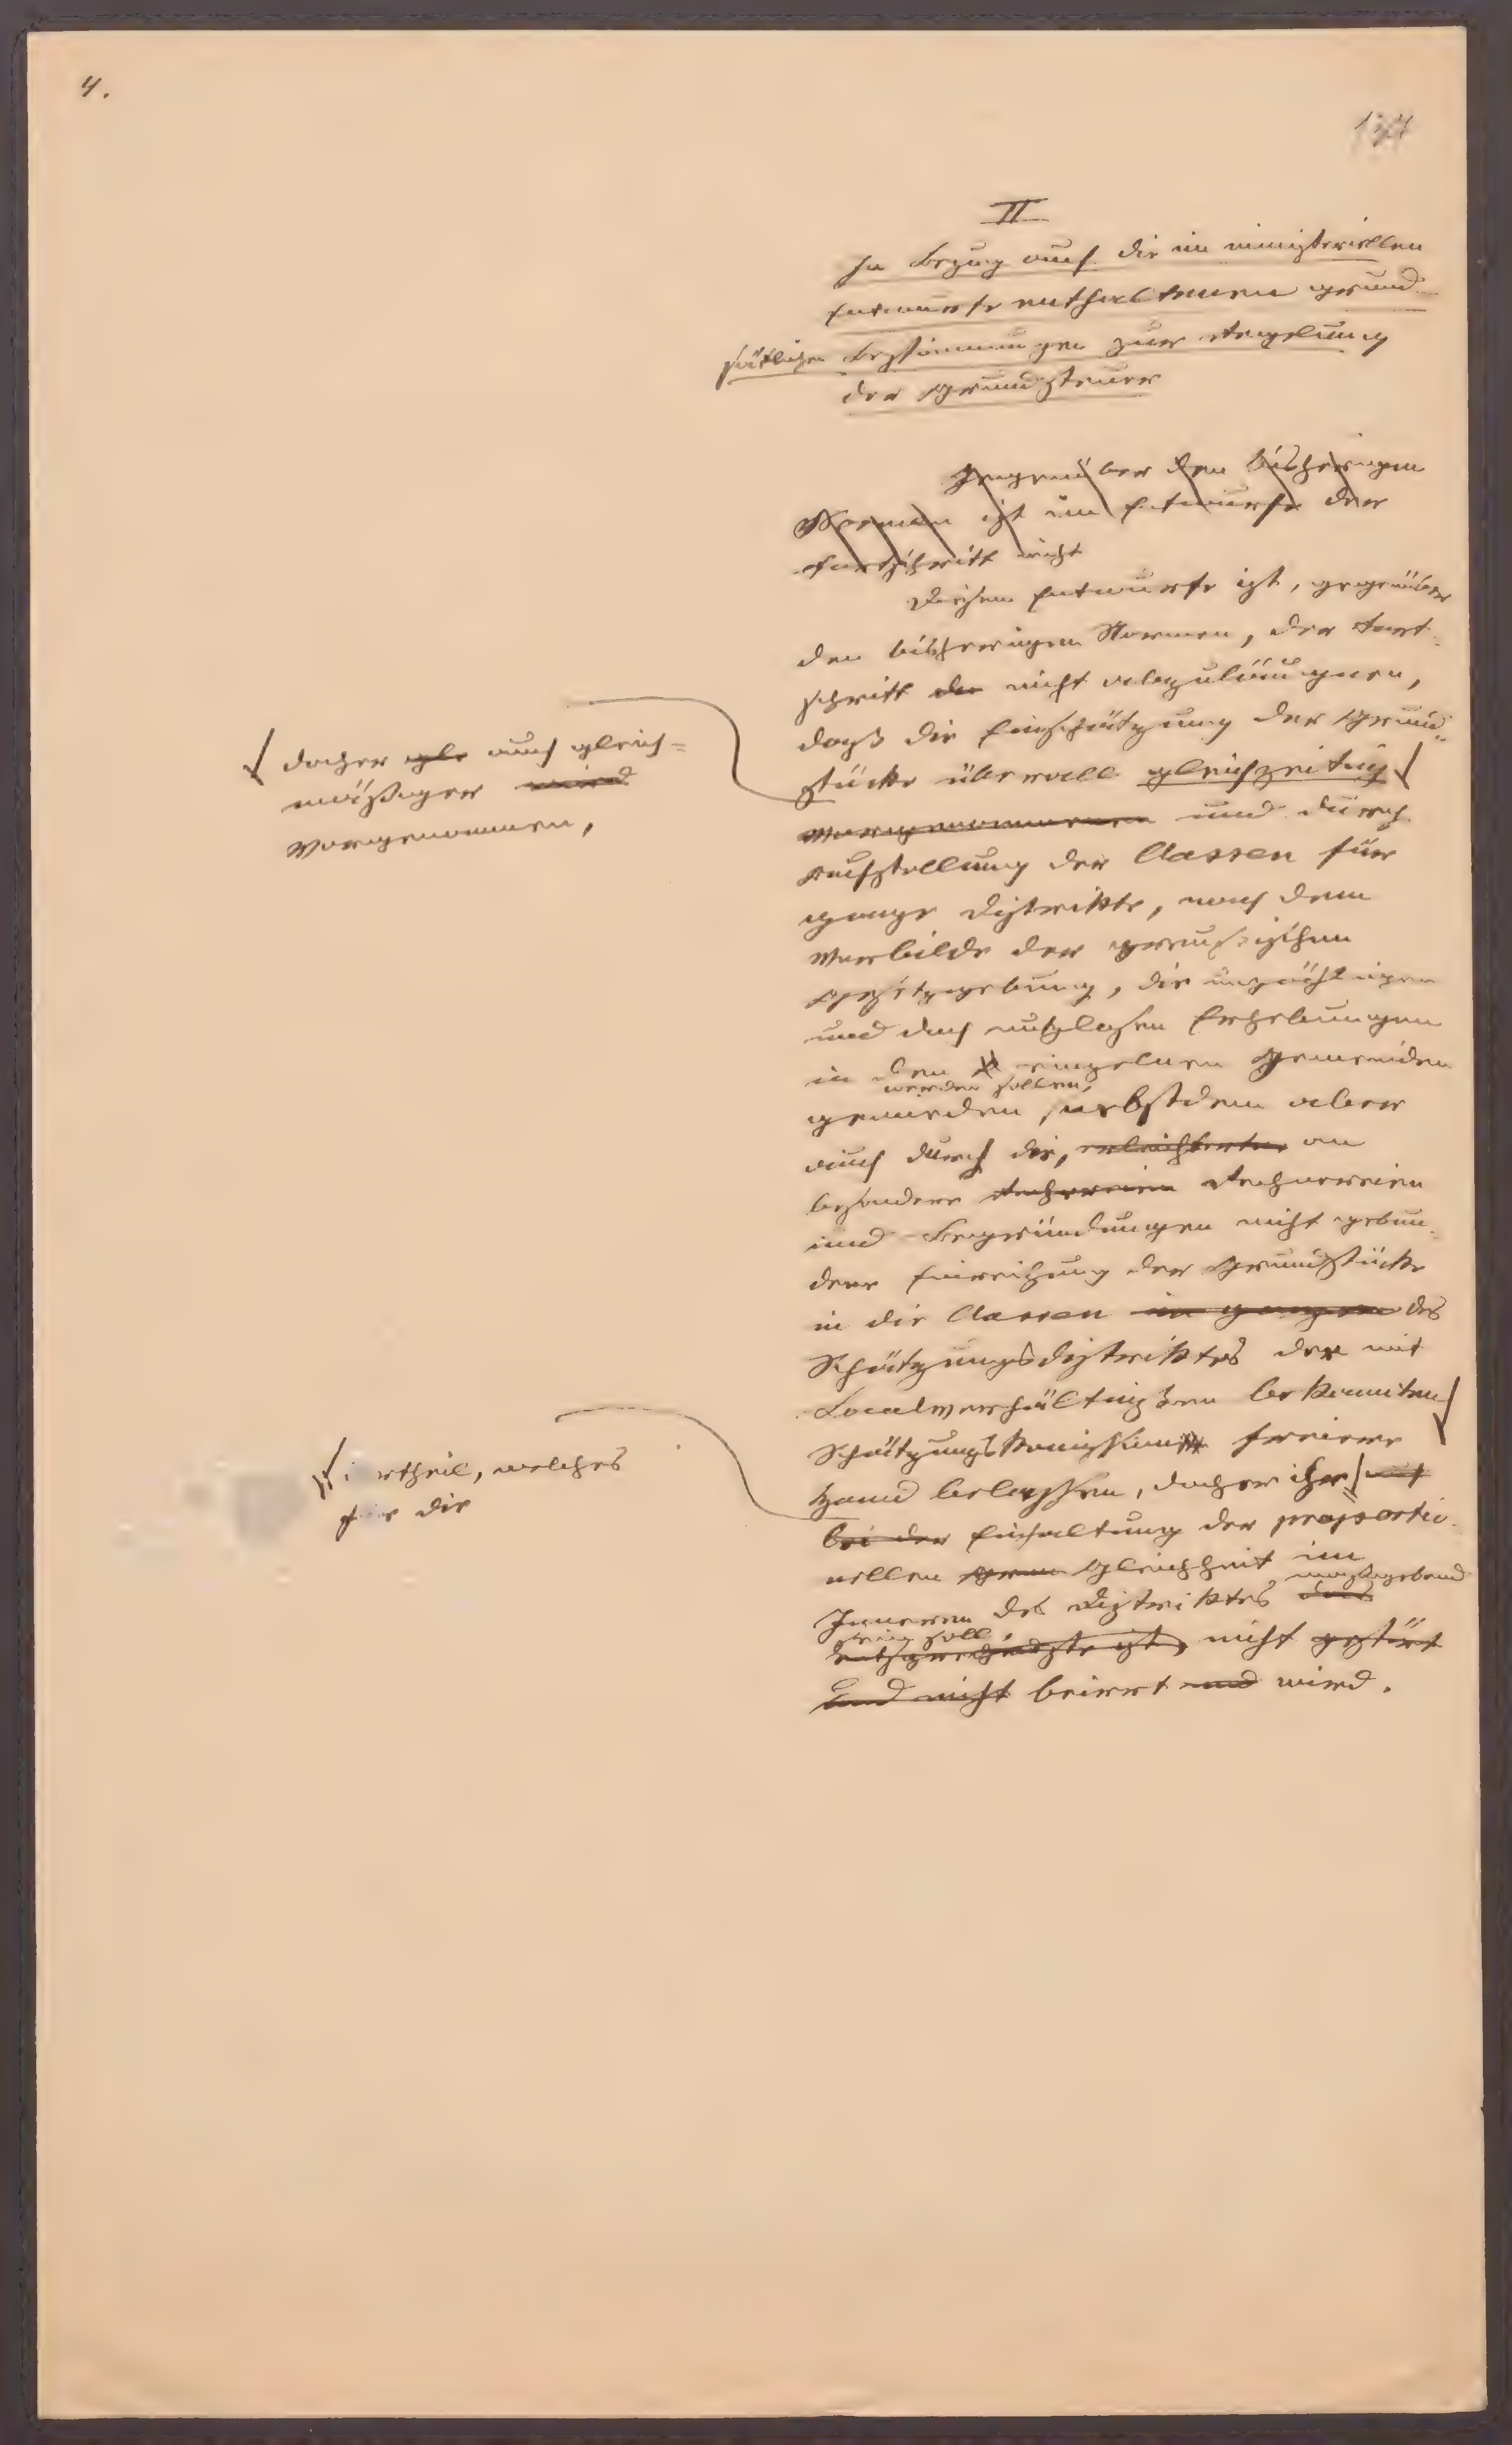 4.
II
In Bezug auf die im ministeriellen
Entwurfe enthaltenen grund-
sätlichen Bestimmungen zur Regelung
der Grundsteuer
Gegenüber den bisherigen
Normen ist im Entwurfe der
Fortschritt nicht
Diesem Entwurfe ist, gegenüber
den bisherigen Normen, der Fort-
schritt der nicht abzuläugnen,
daß die Einschätzung der Grund-
stücke überall gleichzeitig
vorgenommen und durch
daher gle auch gleich=
mäßiger wird
vorgenommen,
Aufstellung der Classen für
ganze Distrikte, nach dem
Vorbilde der preußischen
Gesetzgebung, die unzähligen
und doch nutzlosen Erhebungen
in den einzelnen Gemeinden
werden sollen,
gemieden nebstdem aber
auch durch die, erleichterte an
besondere Rechnereien Rechnereien
und Begründungen nicht gebun-
dene Einreihung der Grundstücke
in die Classen im ganzen des
Schätzungsdistriktes der mit
Localverhältnißen bekannten
Schätzungskomission freiere
Hand belassen, daher ihr
Urtheil, welches
für die
bei der Einhaltung der proportio-
nellen Gleichheit im
maßgebend
Inneren des Distriktes das
sein soll,
entsprechendste ist, nicht gestört
und nicht beirrt und wird.